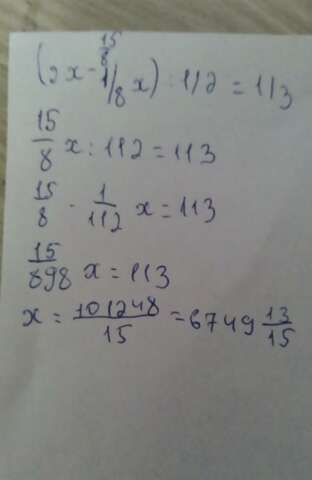 15
8
(2x - 1/8 x) : 112 = 113
15/8 x : 112 = 113
15/8 · 1/112 x = 113
15/898 x = 113
x = 101248/15 = 6749 13/15